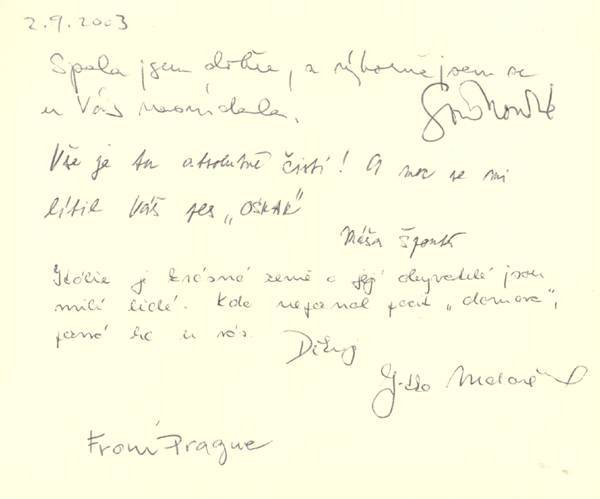 2.9.2003
Spala jsem dobře, a výborně jsem se
u Vás nasnídala.
Vše je tu absolutně čisté! A moc se mi
líbil Váš pes „OSKAR“
Máša
Itálie je krásná země a její obyvatelé jsou
milí lidé. Kdo nepoznal pocit „domova“,
pozná ho u vás. Díky
From Prague